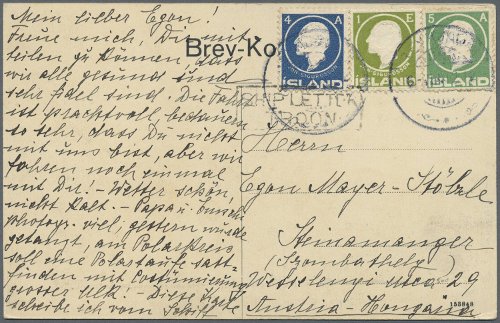 Mein lieber Egon!
Freue mich, Dir mit-
teilen zu können, dass
wir alle gesund sind
sehr fidel sind. Die Fahrt
ist prachtvoll, bedauern
so sehr, dass Du nicht
mit uns bist, aber wir
fahren noch einmal
mit Dir! - Wetter schön,
nicht kalt. - Papa u.
photogr. viel, gestern wurde
getanzt, am Polarkreis
soll eine Polartaufe statt-
finden mit Costümierung
grosser Ulk! Diese
schreibe ich vom Schiff
Brev-Ko
4 A
ÍSLAND
1 E
JÓN SIGURÐSSON
ÍSLAND
5 A
ÍSLAND
Herrn
Egon Mayer-Stölzle
Steinamanger
(Szombathely)
Wesselenyi utca 29
Austria-Hongarie
153848